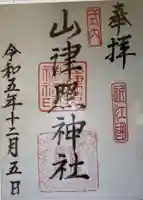 奉拝
式内
近江國
山津照神社
令和五年十二月五日